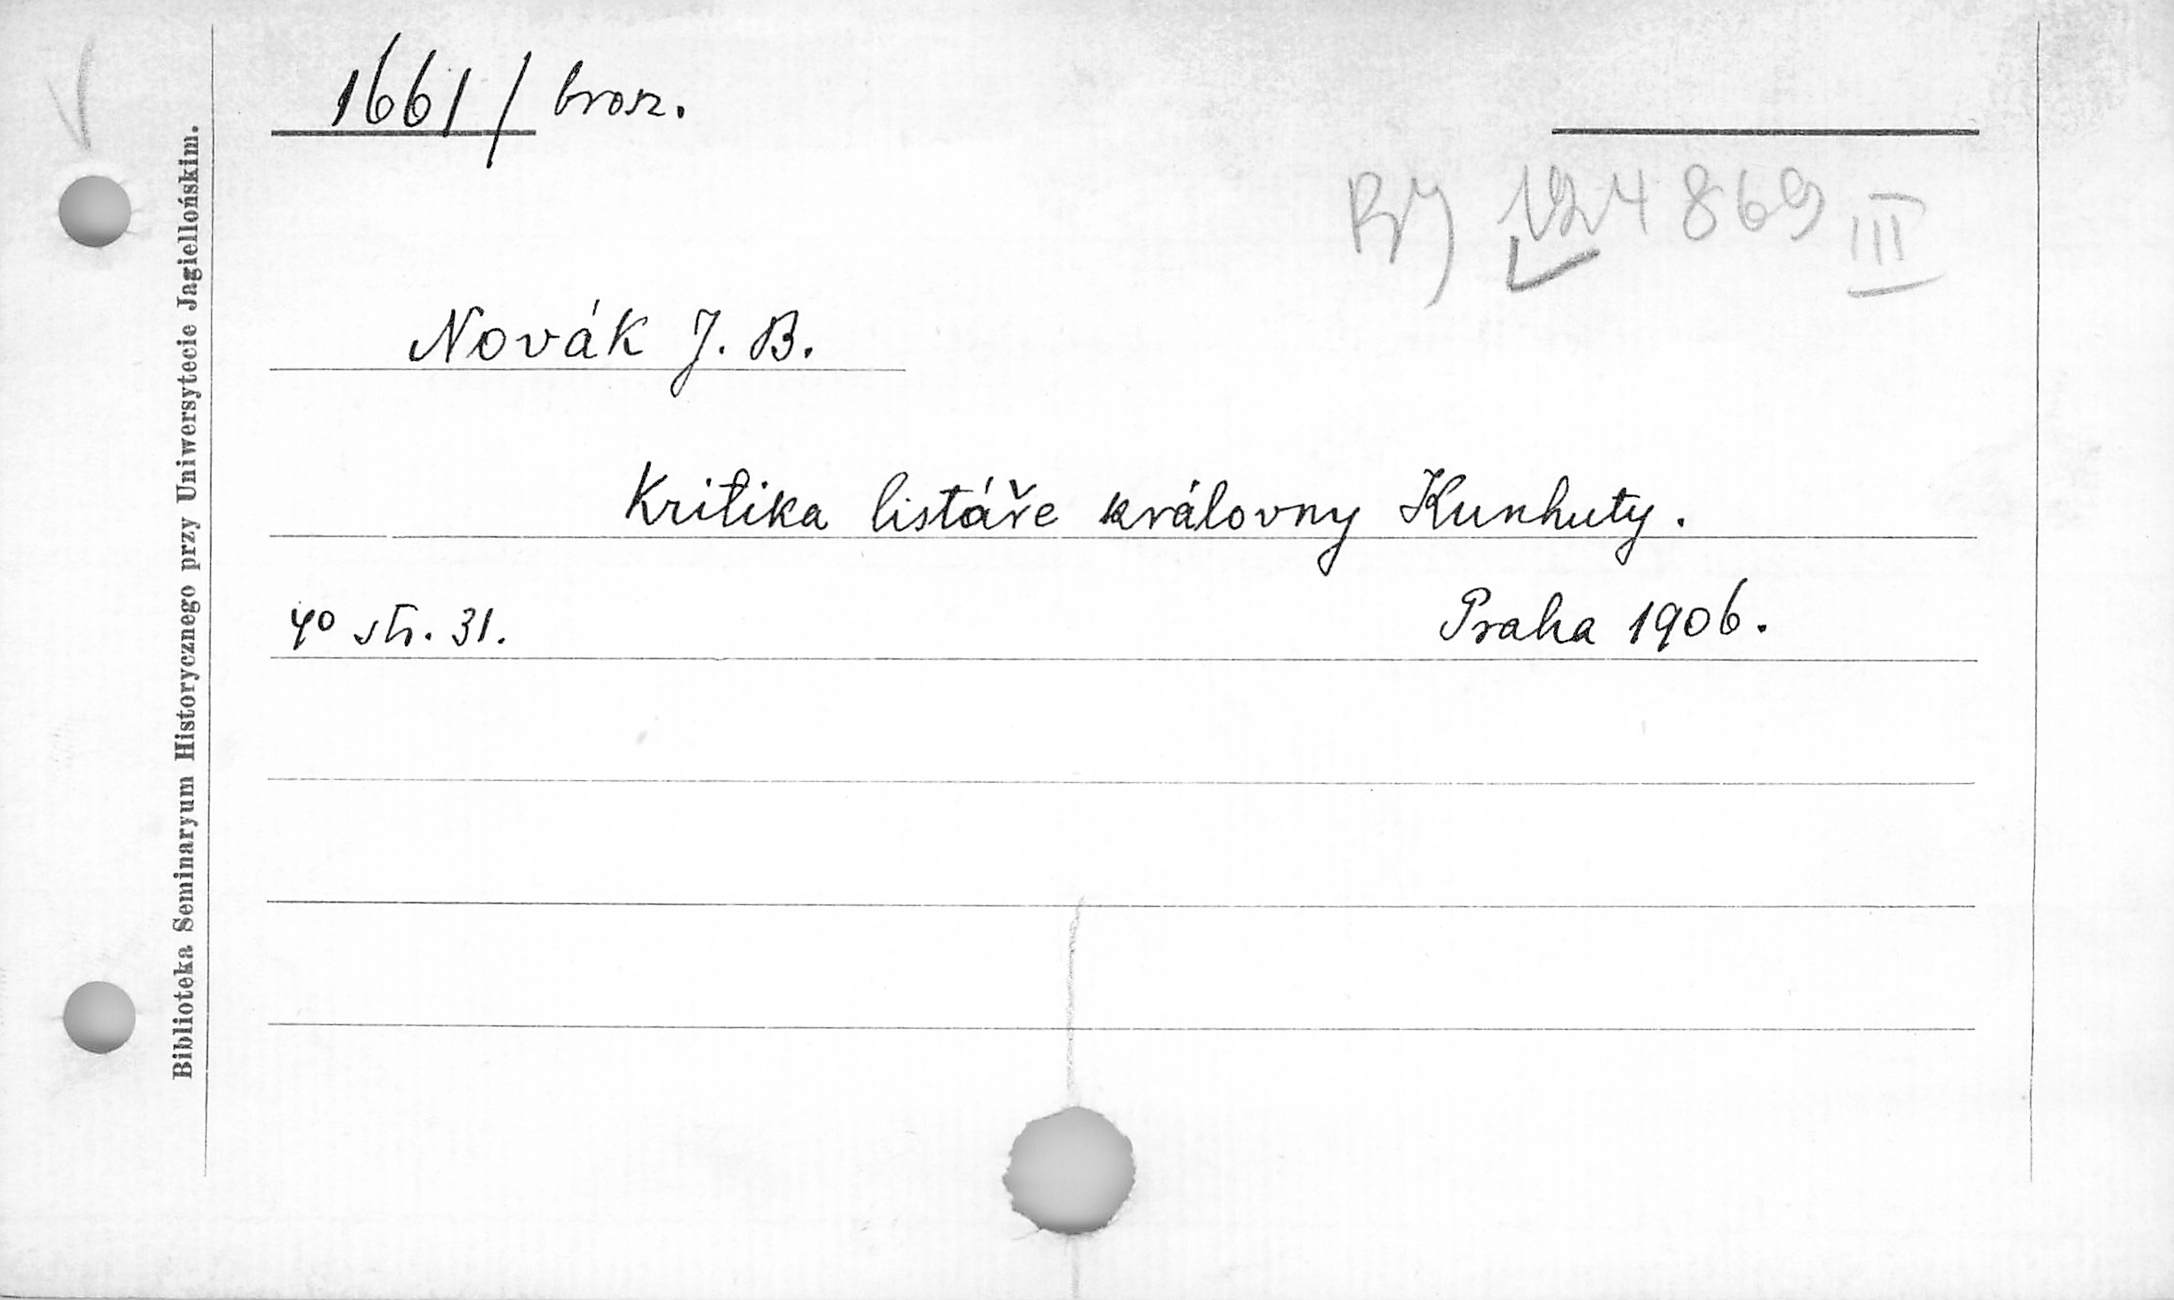 1661/brosz.
BJ 124869 III
Novák J. B.
Kritika listáře královny Kunhuty.
4º str. 31.
Praha 1906.
Biblioteka Seminaryum Historycznego przy Uniwersytecie Jagiellońskim.